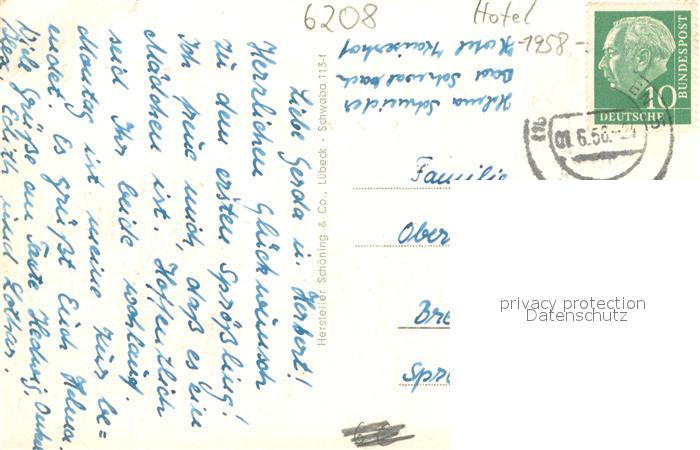 6208
Hotel
1958
Helma Schneider
Bad Schwalbach
Hotel Kaiserhof
DEUTSCHE
BUNDESPOST
10
01.6.58.-24
Familie
Ober
Bre
Spr
Liebe Gerda u. Herbert!
Herrlichen Glückwunsch
zu dem ersten Sprößling!
Ich freue mich, daß es ein
Mädchen ist. Hoffentlich
seid Ihr beide wohlauf.
Montag ist meine Kur be=
endet. Es grüßt Euch Helma.
Viele Grüße an Tante Hedwig, Onkel
Edith und Lothar.
Hersteller Schöning & Co., Lübeck · Schwaba 113-f
privacy protection
Datenschutz